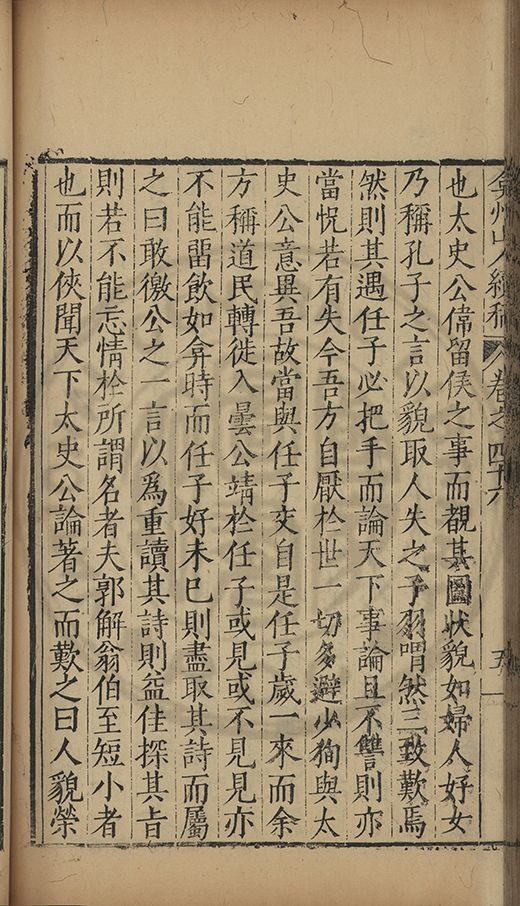 弇州山人續稿 卷之四十六 五
也太史公偉留侯之事而覩其圖狀貌如婦人好女
乃稱孔子之言以貌取人失之子羽喟然三致歎焉
然則其遇任子必把手而論天下事論且不讐則亦
當怳若有失今吾方自厭於世一切多避少狥與太
史公意異吾故當與任子交自是任子歲一來而余
方稱道民轉徙入曇公靖於任子或見或不見見亦
不能留飲如弇時而任子好未已則盡取其詩而屬
之曰敢徼公之一言以爲重讀其詩則益佳探其旨
則若不能忘情於所謂名者夫郭解翁伯至短小者
也而以俠聞天下太史公論著之而歎之曰人貌榮